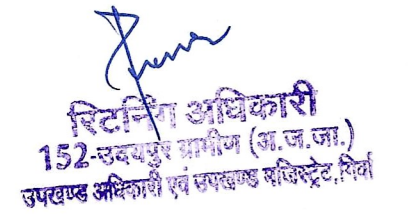 रिटर्निंग अधिकारी
152-उदयपुर ग्रामीण (अ.ज.जा.)
उपखण्ड अधिकारी एवं उपखण्ड मजिस्ट्रेट, गिर्वा